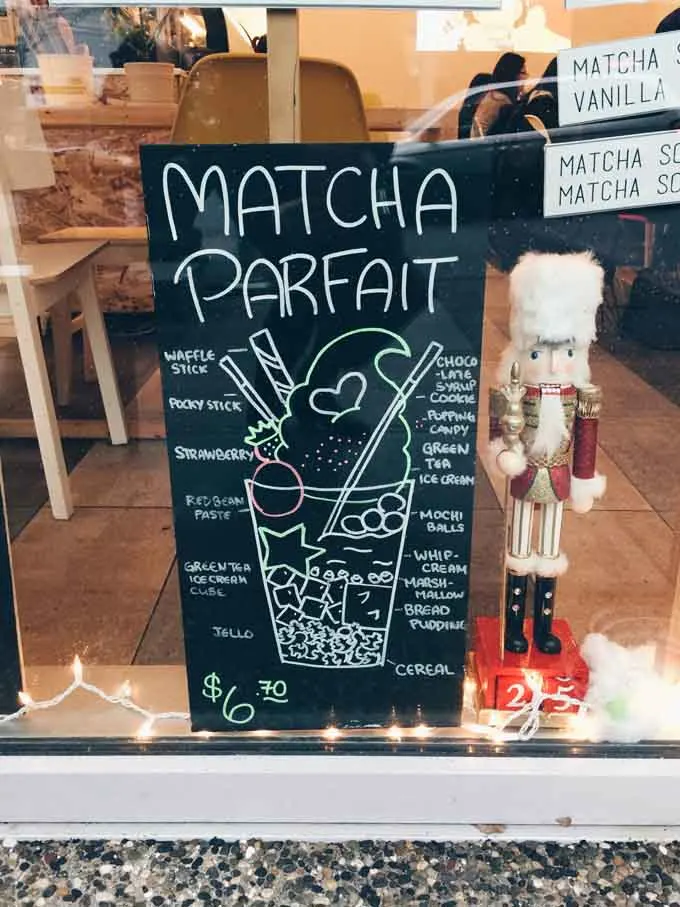 MATCHA S
VANILLA
MATCHA SO
MATCHA SO
MATCHA
PARFAIT
WAFFLE
STICK
POCKY STICK
STRAWBERRY
REDBEAN
PASTE
GREEN TEA
ICE CREAM
CUBE
JELLO
$6.70
CHOCO
-LATE
SYRUP
COOKIE
POPPING
CANDY
GREEN
TEA
ICE CREAM
MOCHI
BALLS
WHIP-
CREAM
MARSH-
MALLOW
BREAD
PUDDING
CEREAL
2 5